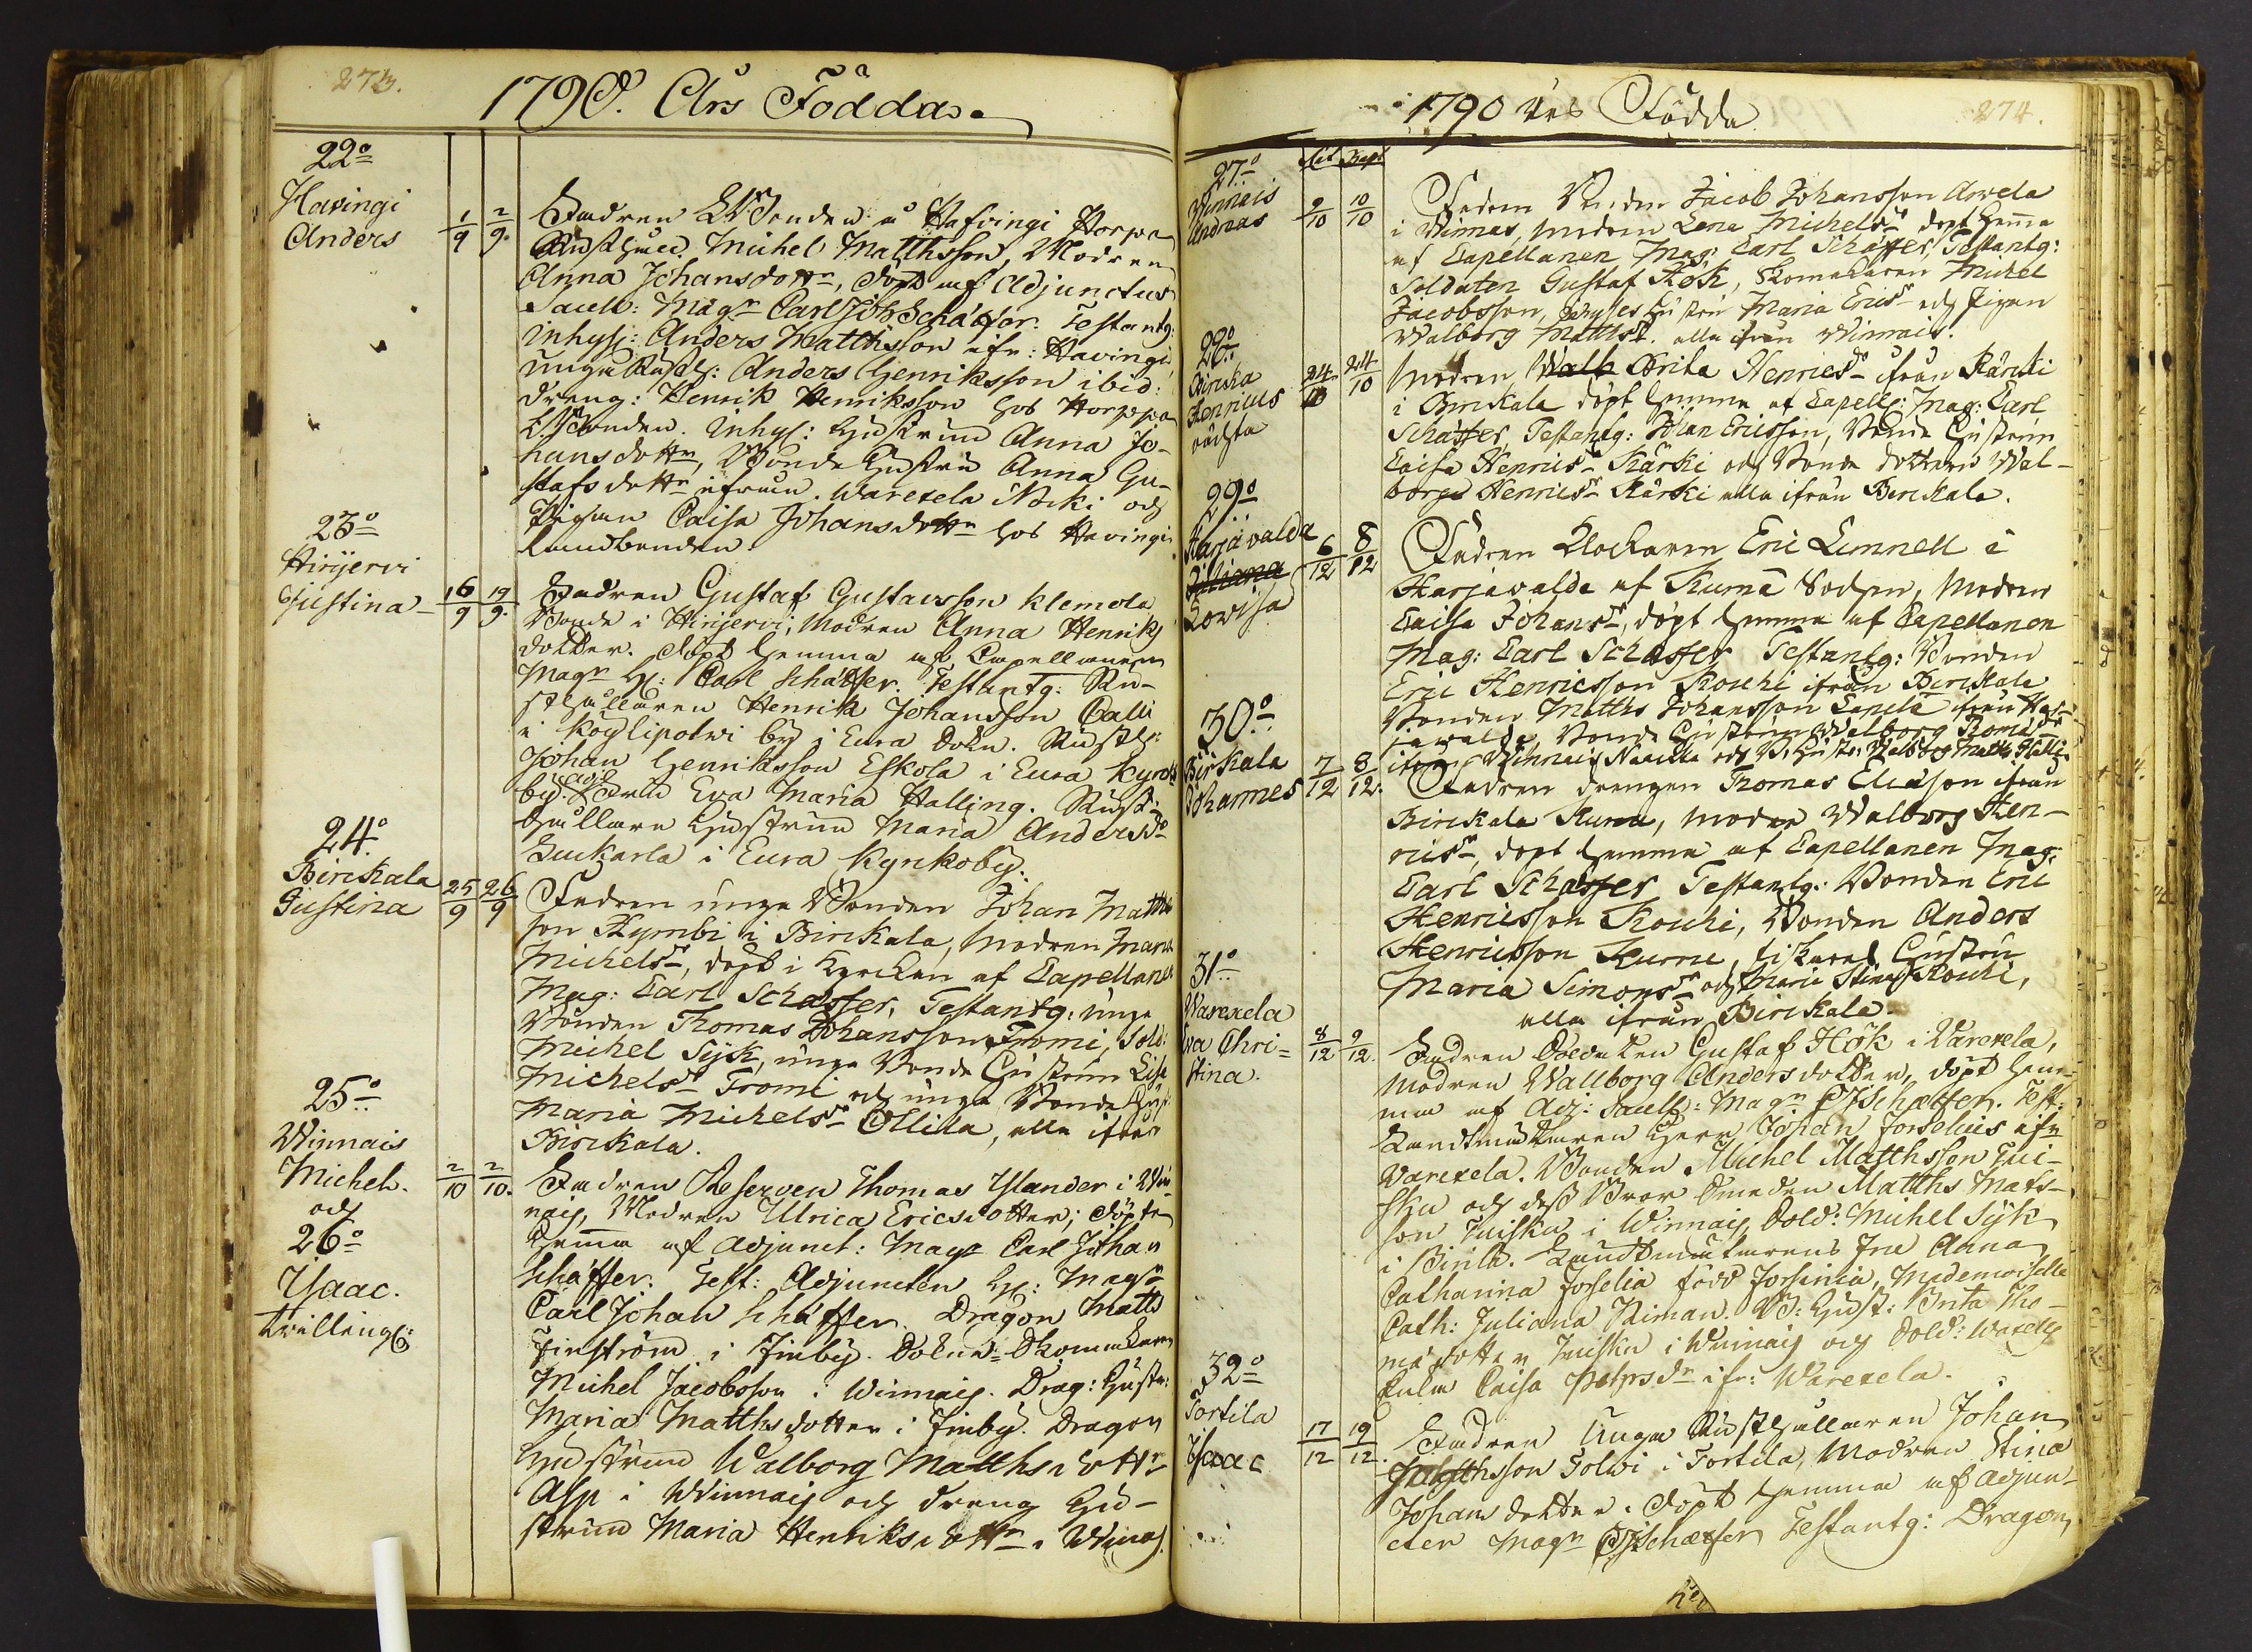 273.
1790. Års Födda.
22o
Havingi
Anders
1/9 2/9.
Fadren LBonden å Hafvingi Horppa
Michel Matthsson, Modren
Anna Johansdottr, döpt af Adjunctus
Sacell: Magr Carl Joh Schæffer. Testantg:
Inhysg: Anders Matthsson ifr: Havingi,
unga Rusth: Anders Henriksson ibid:
dreng: Henrik Henriksson hos Horppa
LBonden. Inhys: Hustrun Anna Jo-
hansdottr, Bonde Hustrun Anna Gu-
stafsdottr ifrån Warexela Nocki och
Pigan Caisa Johansdottr hos Havingi
Landbonden.
23o
Hinjervi
Justina
16/9 19/9.
Fadren Gustaf Gustavsson Klemola
Bonde i Hinjervi, Modren Anna Henriks
dotter. döpt hemma af Capellanen
Magr H: Carl Schæffer. Testantg: Ru-
sthållaren Henrik Johansson Calli
i Köylipolvi by i Eura Sokn. Rusth:
Johan Henriksson Eskola i Eura Kyrko
by. Fru Eva Maria Halling. Rust-
hållare Hustrun Maria Andersdr
Luckarla i Eura Kyrkoby.
24o
Birckala
Justina
25/9 26/9
Fadren unga Bonden Johan Matths
son Kymbi i Birckala, Modren Maria
Michelsdr, döpt i Kyrckan af Capellanen
Mag: Carl Schæffer, Testantg: unga
Bonden Thomas Johansson Fromi, Sold:
Michel Sijk, unga Bonde Hustrun Lisa
Michelsdr Fromi och unga Bonde Hust
Maria Michelsdr Ollila, alla ifrån
Birckala.
25o
Winnais
Michel.
och
26o
Ysaac.
tvillingg:
2/10 2/10.
Fadren Reserven Thomas Ylander i Win-
nais, Modren Ulrica Ericsdotter, döpte
hemma af Adjunct: Magr Carl Johan
Schæffer. Test: Adjuncten H: Magr
Carl Johan Schæffer. Dragon Matts
Finström i Finby. Sokne Skomakaren
Michel Jacobsson i Winnais. Drag: Hustr:
Maria Matthsdotter i Finby. Dragon
Hustrun Walborg Matthsdottr
Asp i Winnais och dreng Hu-
strun Maria Henriksdottr i Winnais.
1790 års Födda
274.
Nat Bapt
27o
Winnais
Andreas
9/10 10/10
Fadren Bonden Jacob Johansson Arvela
i Winnais, Modren Lena Michelsdr döpt hemma
af Capellanen Mag: Carl Schæffer, Testantg:
Soldaten Gustaf Hök, Skomakaren Michel
Jacobsson, Hustrun Maria Ericsdr och Pigan
Walborg Matthsdr. alla ifrån Winnais.
28o
Birckala
Henricus
oächta
24/10 24/10
Modren Brita Henricsdr ifrån Kärcki
i Birckala döpt hemma af Capell: Mag: Carl
Schæffer, Testantg: Johan Ericsson, Bonde Hustrun
Caisa Henricsdr Kärcki och Bonde dottern Wal-
borg Henricsdr Kärcki alla ifrån Birckala.
29o
Harjavalda
Juliana
Lovisa
6/12 8/12
Fadren Klockaren Eric Lennell i
Harjavalda af Kumå Sockn, Modren
Caisa Johansdr, döpt hemma af Capellanen
Mag: Carl Schæffer Testantg: Bonden
Eric Henricsson Kouhi ifrån Birckala
Bonden Matths Johansson Lapela ifrån Har-
javalda, Bonde Hustrun Walborg Thomædr
ifrån Winnais
30o
Birkala
Johannes
7/12 8/12.
Fadren drengen Thomas Eliæson ifrån
Birckala Kurra, Modren Walborg Hen-
ricsdr, döpt hemma af Capellanen Mag:
Carl Schæffer, Testantg: Bonden Eric
Henricsson Kouhi, Bonden Anders
Henricsson Kurra, Hustru
Maria Simonsdr och Maria Stina Kouhi,
alla ifrån Birckala.
31o
Warexela
Eva Chri=
stina.
8/12 9/12.
Fadren Soldaten Gustaf Hök i Varexela,
Modren Wallborg Andersdotter, döpt hem-
ma af Adj: Sacell: Magr CJSchæffer. Test:
Landtmätaren Herr Johan Forselius ifr
Varexela. Bonden Michel Matthsson Tui-
sku och dess Bror Smeden Matths Mats-
son Tuisku i Winnais, Sold: Michel Sijk
i Birkla. Landtmätarens Fru Anna
Catharina Forselia född Forsenia, Mademoiselle
Cath: Juliana Kiman. B: Hust: Brita Tho-
mædotter Tuisku i Winnais och Sold:
Enka Caisa Pehrsdr ifr: Warexela.
32o
Tortila
Isaac
17/12 19/12.
Fadren Unga Rusthållaren Johan
Matthsson Tolvi i Tortila, Modren Stina
Johansdotter. döpt hemma af Adjun-
cten Magr CJSchæffer Testantg: Dragon